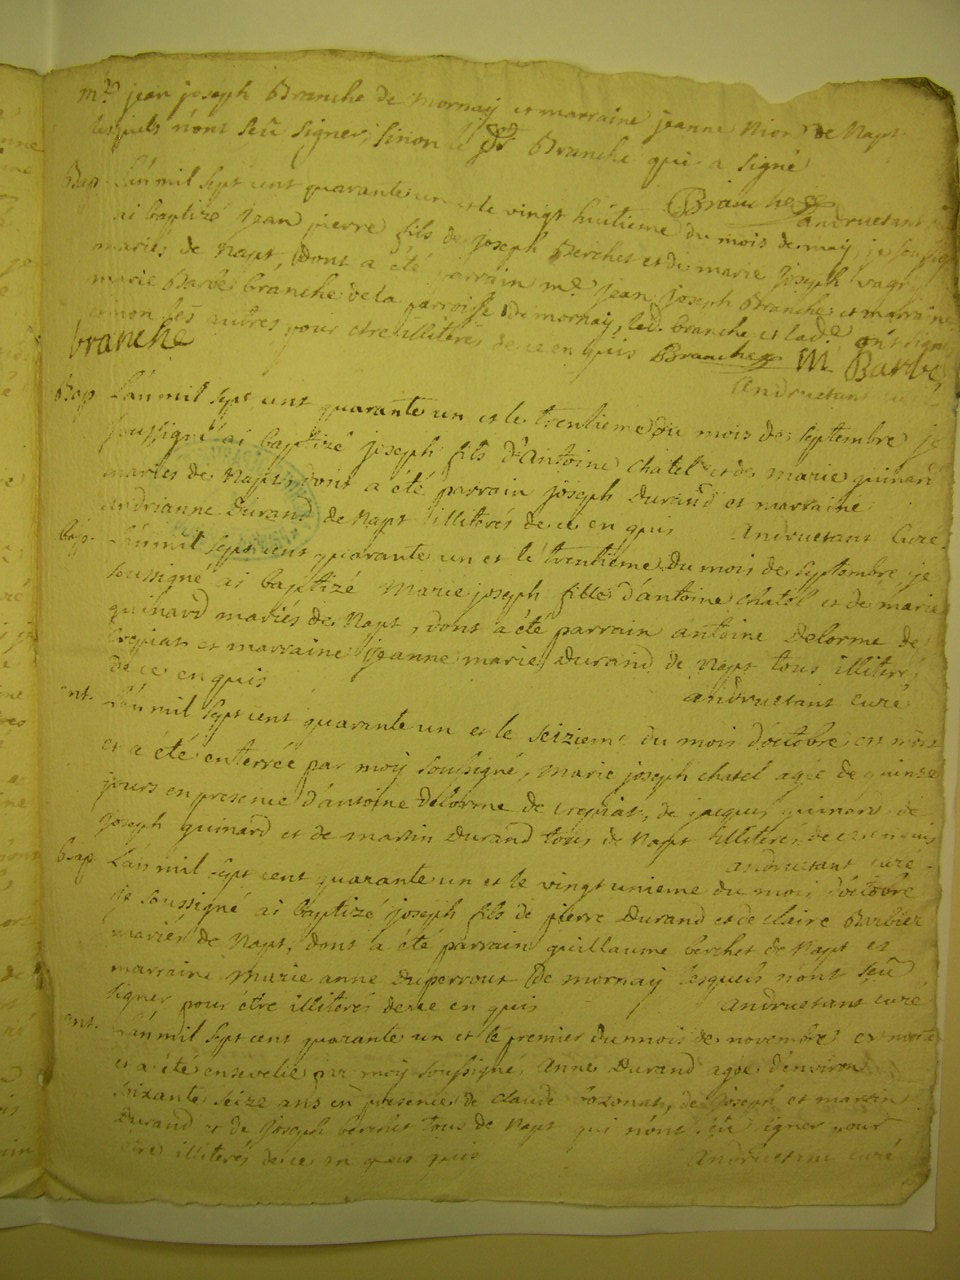 mre jean joseph Branche de mornay et marraine jeanne Nior de Napt
lesquels n'ont seû signer, sinon le sr Branche qui a signé
Branche andruetant
Bap. L'an mil sept cent quarante un et le vingt huitieme du mois de may, je soussigné
ai baptizé jean pierre fils de joseph Berchet et de marie joseph
mariés de Napt, dont a été parrain me jean joseph Branche et marraine
marie Barbe branche de la parroisse de mornay, led. branche et lad. ont signé
et non les autres pour etre illitérés de ce en quis Branche M. Barbe
branche
andruetant curé
Bap L'an mil sept cent quarante un et le trentieme du mois de septembre je
soussigné ai baptizé joseph fils d'Antoine chatel et de marie guinard
mariés de Napt, dont a été parrain joseph Durand et marraine
andrianne Durand de Napt illiterés de ce en quis andruetant curé
bap. L'an mil sept cent quarante un et le trentieme du mois de septembre, je
soussigné ai baptizé Marie joseph fille d'antoine chatel et de marie
guinard mariés de Napt, dont a été parrain antoine Delorme de
crepiat et marraine jeanne marie Durand de Napt tous illiterés
de ce en quis andruetant curé
ent. L'an mil sept cent quarante un et le seizieme du mois d'octobre est morte
et a été enterrée par moy soussigné, marie joseph chatel agée de quinze
jours en presence d'antoine Delorme de crepiat, de jacques guinard de
joseph guinard et de martin Durand tous de Napt illiterés de ce en quis
andruetant curé
Bap L'an mil sept cent quarante un et le vingt unieme du mois d'octobre
je soussigné ai baptizé joseph fils de pierre Durand et de claire Barbier
mariés de Napt, dont a été parrain guillaume berchet de Napt et
marraine Marie anne Duperrout de mornay lesquels n'ont seû
signer pour etre illiterés de ce en quis andruetant curé
ent. L'an mil sept cent quarante un et le premier du mois de novembre est morte
et a été ensevelie par moy soussigné, Anne Durand agée d'environ
soixante seize ans en presence de claude de joseph et martin
Durand et de joseph berchet tous de Napt qui n'ont seû signer pour
etre illiterés de ce en quis andruetant curé